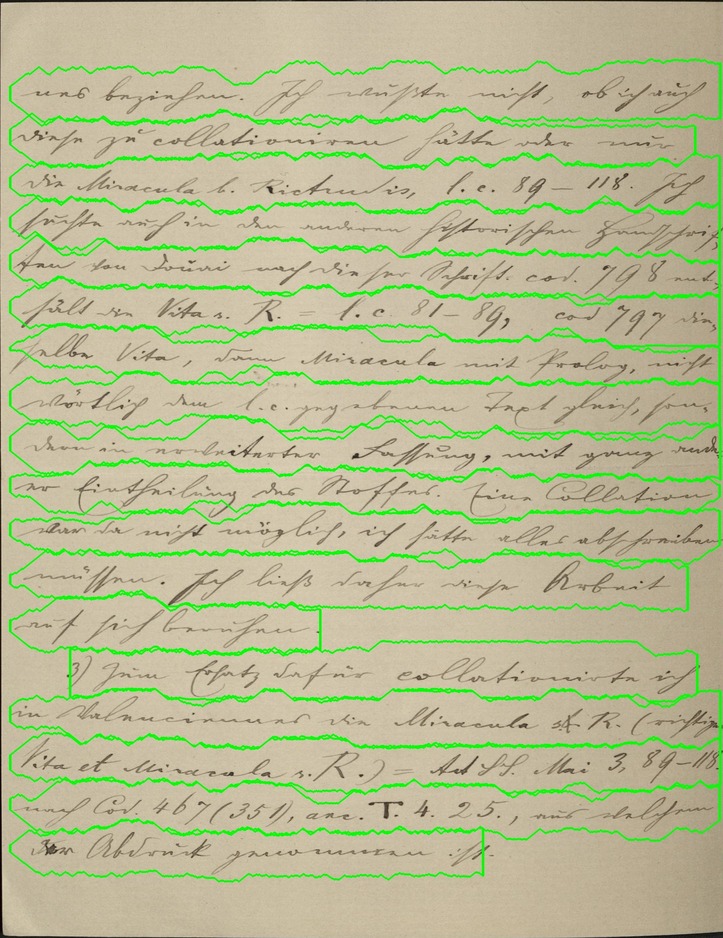 nes beziehen. Ich wußte nicht, ob ich auch
diese zu collationiren hätte oder nur
die Miracula b. Rictrudis, l. c. 89 – 118. Ich
suchte auch in den anderen historischen Handschrif-
ten von Douai nach dieser Schrift. cod. 798 ent-
hält die Vita s. R. = l. c. 81 – 89, cod 797 die-
selbe Vita, dann Miracula mit Prolog, nicht
wörtlich dem l. c. gegebenen Text gleich, son-
dern in erweiterter Fassung, mit ganz ande-
er Eintheilung des Stoffes. Eine Collation
war da nicht möglich, ich hätte alles abschreiben
müssen. Ich ließ daher diese Arbeit
auf sich beruhen.
3) Zum Ersatz dafür collationirte ich
in Valenciennes die Miracula R. (richtig
Vita et Miracula s. R.) = Act SS. Mai 3, 89–118.
nach Cod. 467 (351), anc. T. 4. 25., aus welchem
der Abdruck genommen ist.